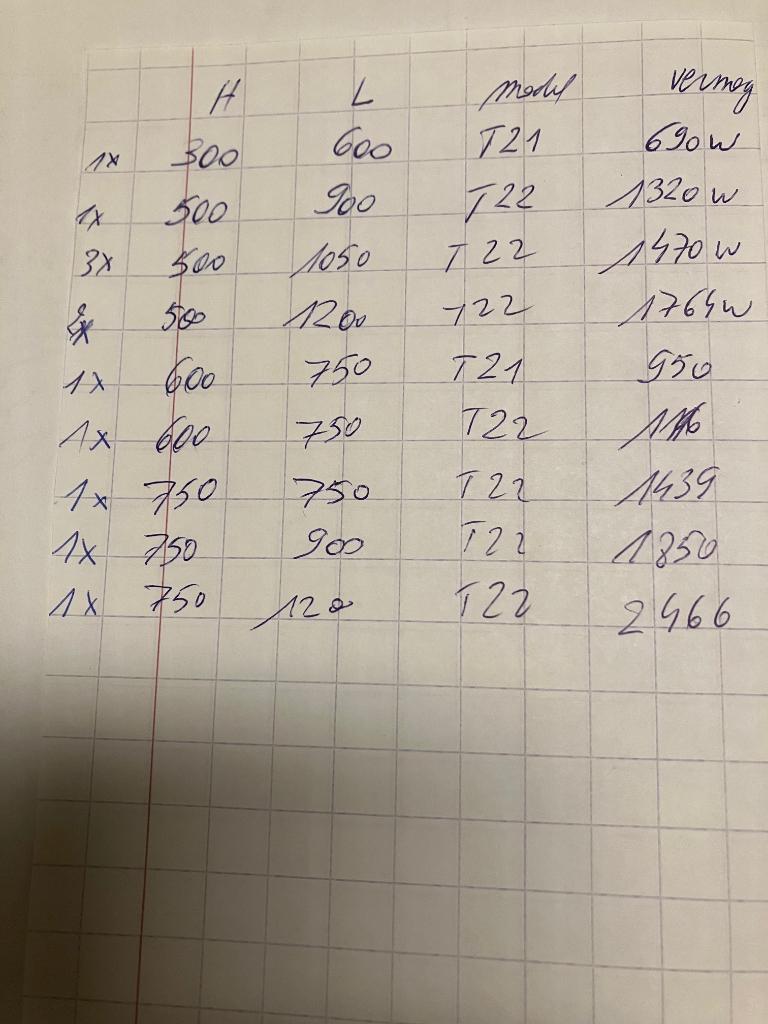 H L model vermog
1x 300 600 T21 690w
1x 500 900 T22 1320w
3x 500 1050 T22 1470w
500 1200 T22 1764w
1x 600 750 T21 950
1x 600 750 T22
1x 750 750 T22 1439
1x 750 900 T22 1850
1x 750 120 T22 2466